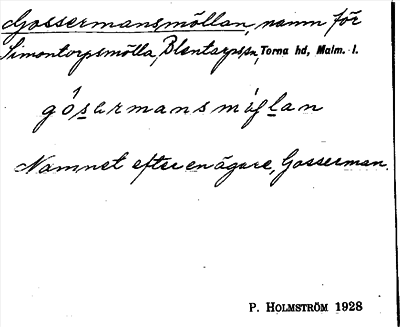 Gossermansmöllan, namn för
Simontorpsmölla, Blentarps sn, Torna hd, Malm. l.
gósərmansmöɫan
Namnet efter en ägare, Gosserman.
P. HOLMSTRÖM 1928